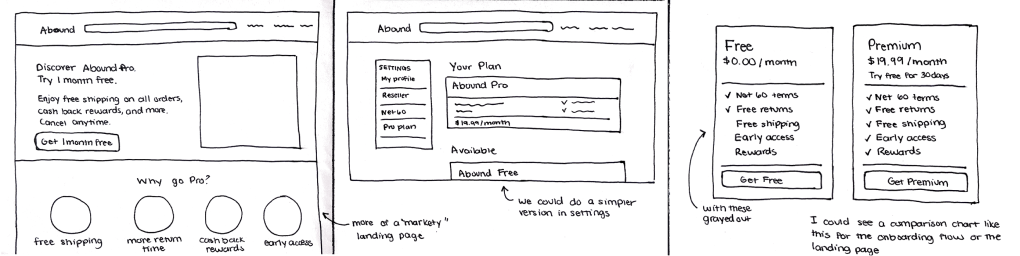 Abound
Discover Abound Pro.
Try 1 month free.
Enjoy free shipping on all orders,
cash back rewards, and more.
Cancel anytime.
Get 1 month free
Why go Pro?
free shipping
more return
time
cash back
rewards
early access
more of a "markety"
landing page
Abound
SETTINGS
My profile
Reseller
Net 60
Pro plan
Your Plan
Abound Pro
$19.99/month
Available
Abound Free
we could do a simpler
version in settings
Free
$0.00/month
✓ Net 60 terms
✓ Free returns
Free shipping
Early access
Rewards
Get Free
with these
grayed out
Premium
$19.99/month
Try free for 30 days
✓ Net 60 terms
✓ Free returns
✓ Free shipping
✓ Early access
✓ Rewards
Get Premium
I could see a comparison chart like
this for the onboarding flow or the
landing page